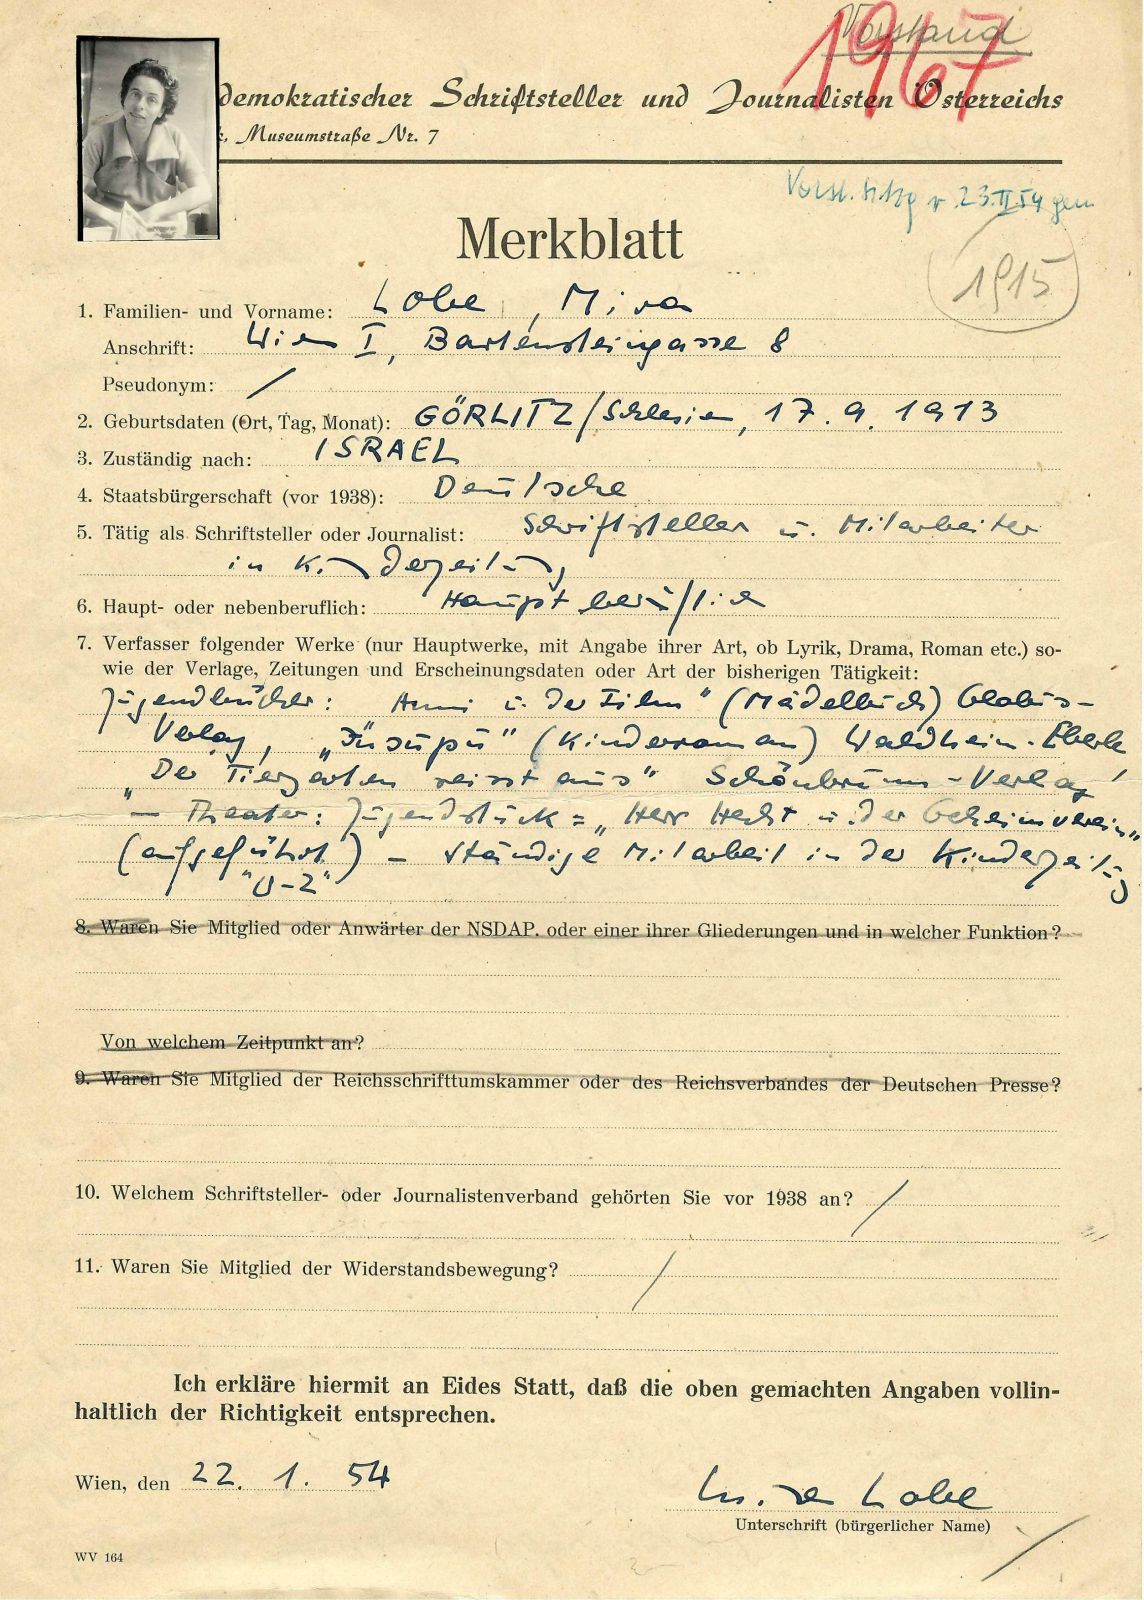 Vorstand
1967
demokratischer Schriftsteller und Journalisten Österreichs
Museumstraße Nr. 7
23.II.54 gen
Merkblatt
1915
1. Familien- und Vorname: Lobe, Mira
Anschrift: Wien I, Bartensteingasse 8
Pseudonym: /
2. Geburtsdaten (Ort, Tag, Monat): GÖRLITZ/Schlesien, 17.9.1913
3. Zuständig nach: ISRAEL
4. Staatsbürgerschaft (vor 1938): Deutsche
5. Tätig als Schriftsteller oder Journalist: Schriftsteller u. Mitarbeiter
in Kinderzeitung
6. Haupt- oder nebenberuflich: Hauptberuflich
7. Verfasser folgender Werke (nur Hauptwerke, mit Angabe ihrer Art, ob Lyrik, Drama, Roman etc.) so-
wie der Verlage, Zeitungen und Erscheinungsdaten oder Art der bisherigen Tätigkeit:
Jugendbücher: Anni u. der Film" (Mädelbuch) Globus-
Verlag, "Insu-Pu" (Kinderroman) Waldheim-Eberle
"Der Tiergarten reisst aus" Schönbrunn-Verlag
— Theater: Jugendstück = "Herr Hecht u. der Geheimverein"
(aufgeführt) — ständige Mitarbeit in der Kinderzeitung
"U-Z"
8. Waren Sie Mitglied oder Anwärter der NSDAP. oder einer ihrer Gliederungen und in welcher Funktion?
Von welchem Zeitpunkt an?
9. Waren Sie Mitglied der Reichsschrifttumskammer oder des Reichsverbandes der Deutschen Presse?
10. Welchem Schriftsteller- oder Journalistenverband gehörten Sie vor 1938 an? /
11. Waren Sie Mitglied der Widerstandsbewegung? /
Ich erkläre hiermit an Eides Statt, daß die oben gemachten Angaben vollin-
haltlich der Richtigkeit entsprechen.
Wien, den 22. 1. 54
Mira Lobe
Unterschrift (bürgerlicher Name)
WV 164